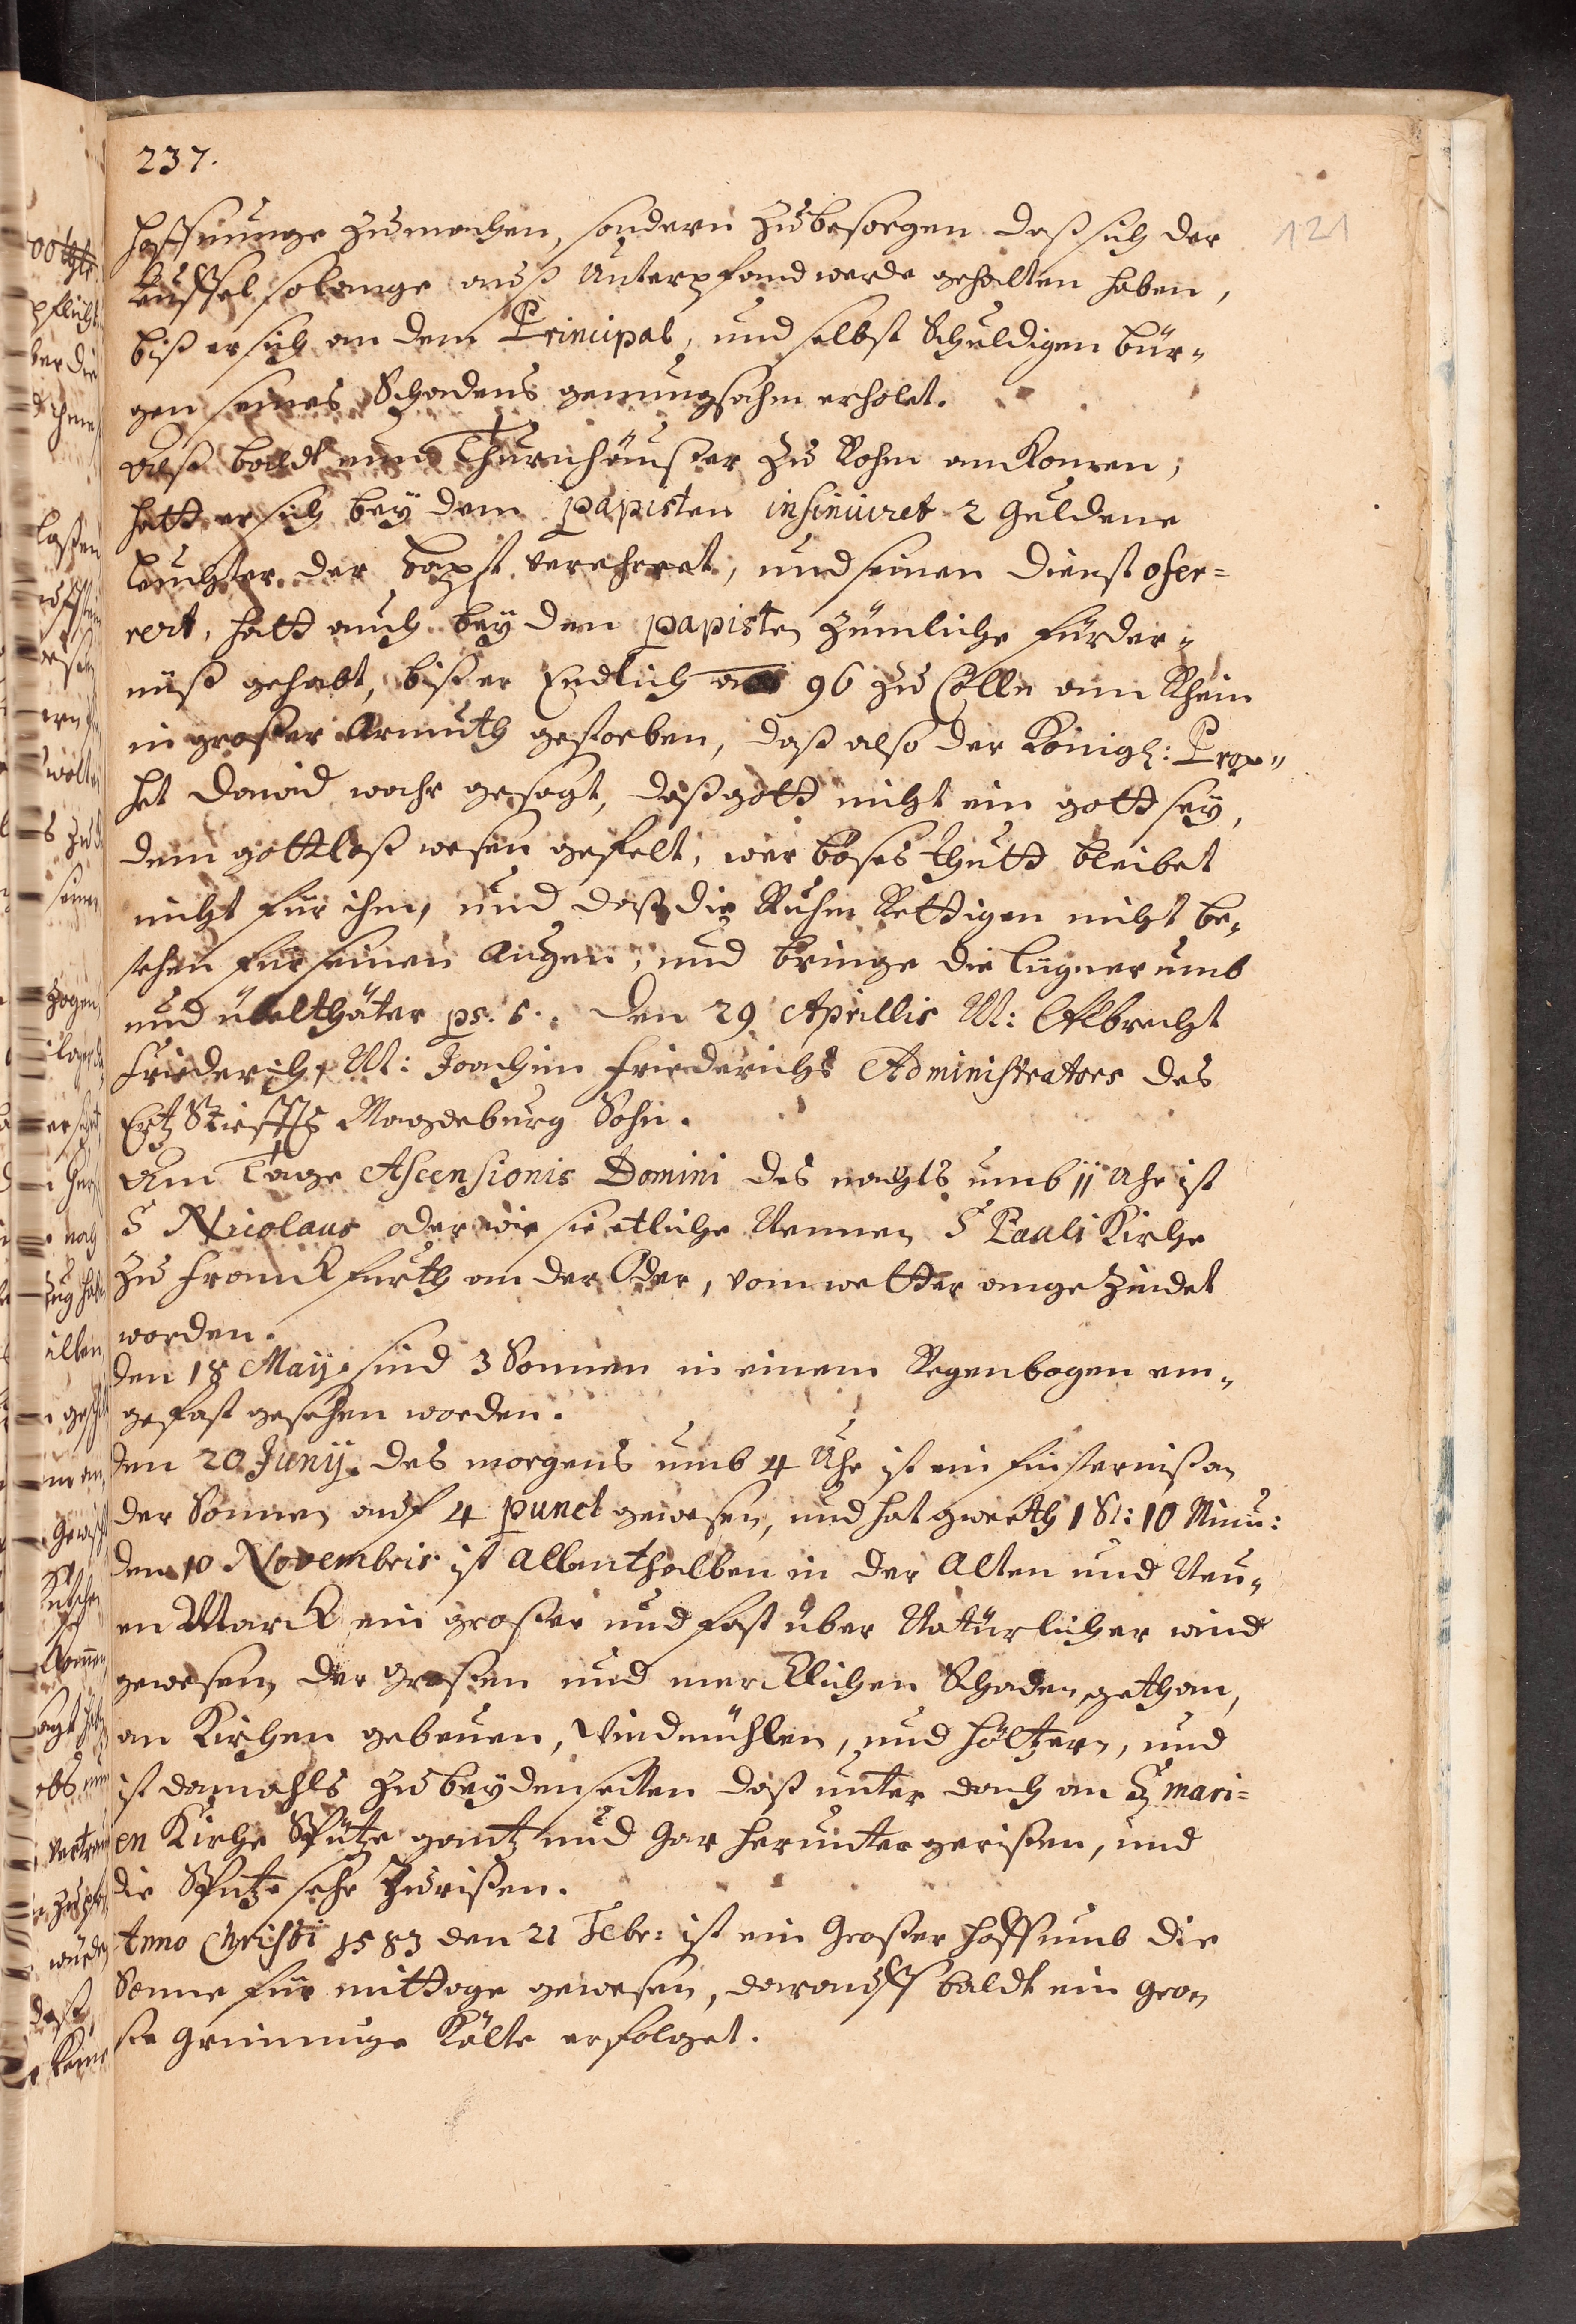 237.
121
hoffnunge zumachen, sondern zubesorgen daß sich der
Teuffel solange anß Unterpfand werde gehalten haben,
biß er sich an dem Principal, und selbst Schuldigen bür„
gen seines Schadens genungsahm erholet.
Alß baldt nun Thurnheußer zu Rohm ankomen,
hatt er sich bey dem papisten insinuiret 2 Guldene
leuchter der Bapst verehret, und seinen dienst ofer=
rert, hatt auch bey den papisten zümliche fürder„
nüß gehabt, biß er Endlich ao 96 zu Cölln am Rhein
in großer Armuth gestorben, daß also der Königl: Prop„
het David wahr gesagt, daß gott nicht ein gott sey,
dem gottloß wesen gefelt, wer böses thutt bleibet
nicht für ihm, und daß die Ruhm Rettigen nicht be„
stehen für seinen Augen, und bringe die lügner umb
und übelthäter ps. 5. den 29 Aprillis M: Albrecht
Friederich, M: Joachim Friederichs Administrators des
Ertz Stiffts Magdeburg Sohn.
Am Tage Ascensionis Domini des nachts umb 11 Uhr ist
S Nicolaus oder wie sie etliche Nennen S Pauli Kirche
zu Franckfurth an der Oder, vom wetter angezündet
worden.
den 18 Maij. sind 3 Sonnen in einem Regenbogen ein„
gefast gesehen worden.
den 20 Junij. des morgens umb 4 Uhr ist ein finsternißan
der Sonnen auf 4 punct gewesen, und hat gwerth 1 St: 10 Minu:
den 10 Novembris ist Allenthalben in der Alten und Neu„
en Marck ein großer und fast über Natürlicher wind
gewesen, der großen und mercklichen Schaden gethan,
an Kirchen gebeuen, Windmühlen, und höltzern, und
ist damahls zu beydenseiten daß unter dach an S mari=
en Kirche Spütze gantz und gar herunter gerißen, und
die Spütze sehr Zurißen.
Anno Christi 1583 den 21 Febr: ist ein Großer hoff umb die
Sonne für mittage gewesen, darauff baldt ein gro„
ße grimmige Kälte erfolget.